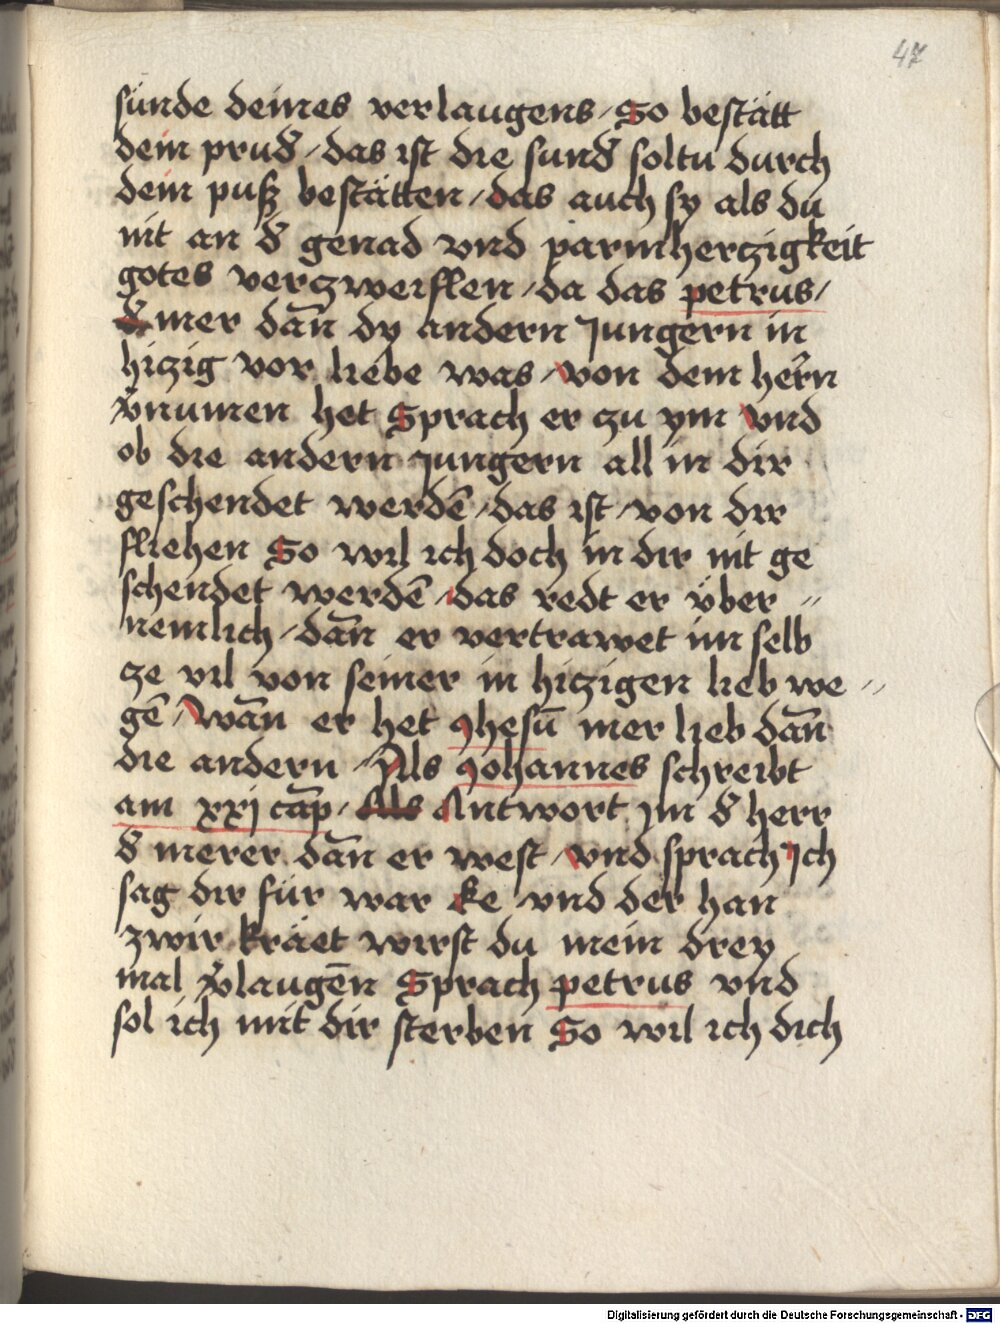 47
sünde deines verlaugens / So bestätt
dein prud̃ / das ist die sund̃ soltu durch
dein pusz bestätten / das auch sy als du
nit an d̃ genad vnd parmherczigkeit
gotes verczweiflen / da das petrus /
mer dañ dy andern Jungern in
hiczig vor liebe was / von dem herrn
v̄numen het Sprach er zu ym vnd
ob die andern jungern all in dir
geschendet werdē / das ist / von dir
fliehen So wil ich doch in dir nit ge
schendet werdē / das redt er über //
nemlich / dañ er vertrawet im selb
ze vil von seiner in hiczigen lieb we //
gē / wañ er het jhesū mer lieb dañ
die andern / Als johannes schreibt
am xxj cap̄ / Als Antwort jm d̃ herr
d̃ merer dañ er west / vnd sprach Ich
sag dir für war ke vnd der han
zwir kräet wirst du mein drey
mal v̄laugēn Sprach petrus vnd
sol ich mit dir sterben So wil ich dich
Digitalisierung gefördert durch die Deutsche Forschungsgemeinschaft - DFG